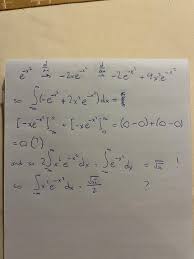 e^{-x^2} \frac{d}{dx} → -2xe^{-x^2} \frac{d}{dx} → -2e^{-x^2} + 4x^2e^{-x^2}
so \int_{-\infty}^{\infty} (-e^{-x^2} + 2x^2e^{-x^2}) dx =
[-xe^{-x^2}]_{-\infty}^{\infty} = [-xe^{-x^2}]_{-\infty}^{\infty} = (0-0)+(0-0) =
0 (!)
and so 2\int_{-\infty}^{\infty} x^2 e^{-x^2} dx = \int_{-\infty}^{\infty} e^{-x^2} dx = \sqrt{\pi} !
so \int_{-\infty}^{\infty} x^2 e^{-x^2} dx = \frac{\sqrt{\pi}}{2} ?